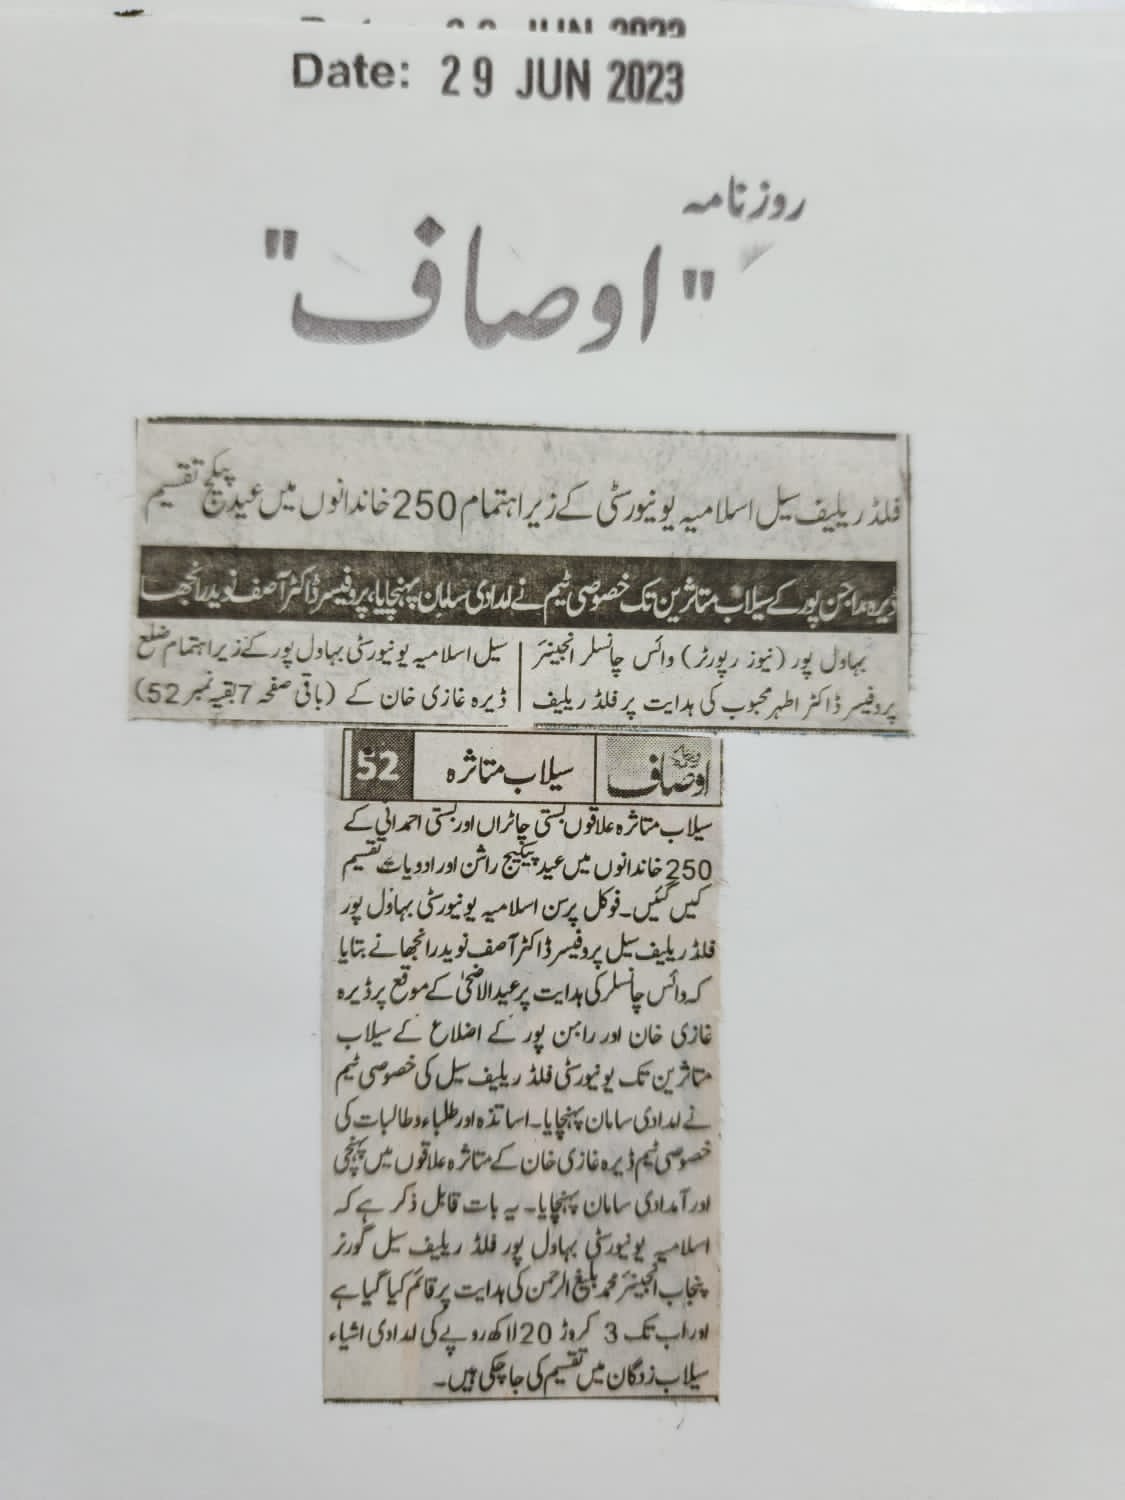 Date: 29 JUN 2023
روزنامہ
"اوصاف"
فلڈ ریلیف سیل اسلامیہ یونیورسٹی کے زیر اہتمام 250 خاندانوں میں عید پیکج تقسیم
ڈیرہ، راجن پور کے سیلاب متاثرین تک خصوصی ٹیم نے امدادی سامان پہنچایا، پروفیسر ڈاکٹر آصف نوید رانجھا
بہاول پور (نیوز رپورٹر) وائس چانسلر انجینئر
پروفیسر ڈاکٹر اطہر محبوب کی ہدایت پر فلڈ ریلیف
سیل اسلامیہ یونیورسٹی بہاول پور کے زیر اہتمام ضلع
ڈیرہ غازی خان کے (باقی صفحہ 7 بقیہ نمبر 52)
اوصاف
سیلاب متاثرہ
52
سیلاب متاثرہ علاقوں بستی چاٹراں اور بستی احمدانی کے
250 خاندانوں میں عید پیکیج راشن اور ادویات تقسیم
کیں گئیں۔ فوکل پرسن اسلامیہ یونیورسٹی بہاول پور
فلڈ ریلیف سیل پروفیسر ڈاکٹر آصف نوید رانجھا نے بتایا
کہ وائس چانسلر کی ہدایت پر عیدالاضحیٰ کے موقع پر ڈیرہ
غازی خان اور راجن پور کے اضلاع کے سیلاب
متاثرین تک یونیورسٹی فلڈ ریلیف سیل کی خصوصی ٹیم
نے امدادی سامان پہنچایا۔ اساتذہ اور طلباء و طالبات کی
خصوصی ٹیم ڈیرہ غازی خان کے متاثرہ علاقوں میں پہنچی
اور امدادی سامان پہنچایا۔ یہ بات قابل ذکر ہے کہ
اسلامیہ یونیورسٹی بہاول پور فلڈ ریلیف سیل گورنر
پنجاب انجینئر محمد بلیغ الرحمن کی ہدایت پر قائم کیا گیا ہے
اور اب تک 3 کروڑ 20 لاکھ روپے کی امدادی اشیاء
سیلاب زدگان میں تقسیم کی جا چکی ہیں۔